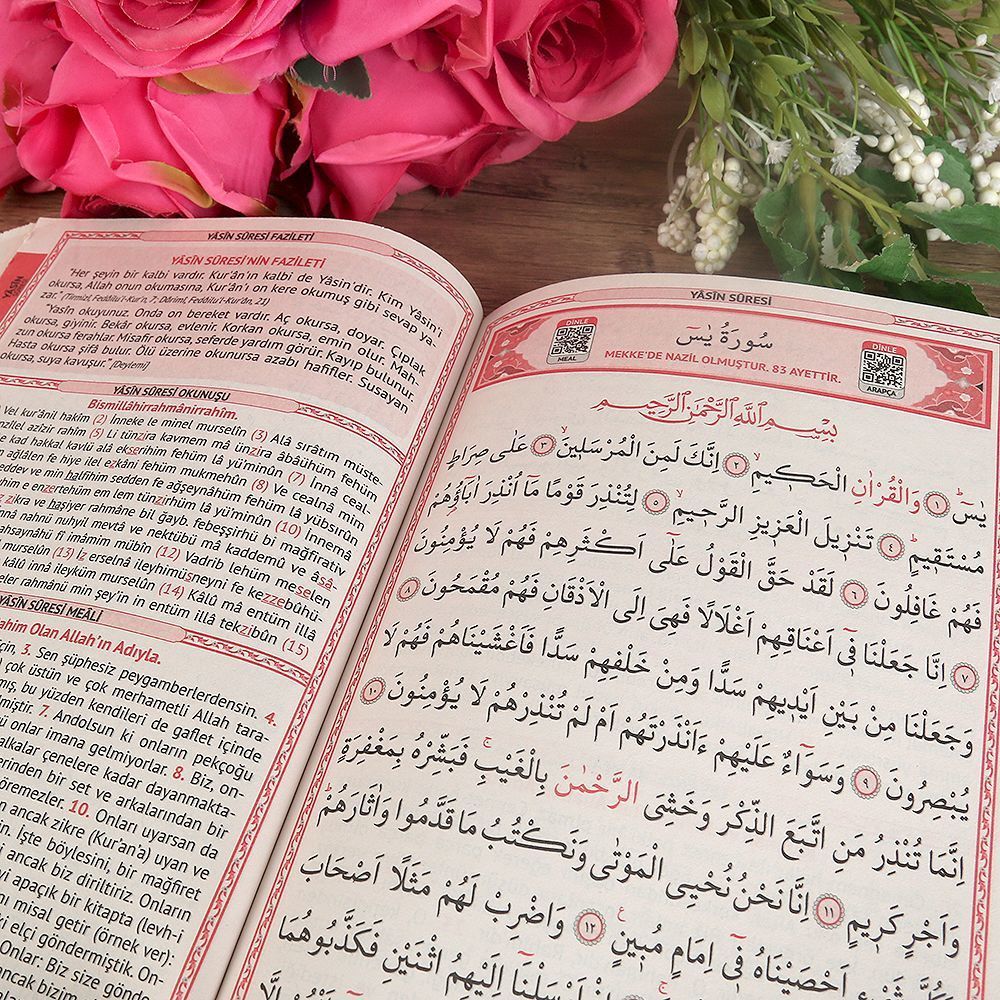 YÂSÎN SÛRESİ FAZİLETİ
YÂSÎN SÛRESİ'NİN FAZİLETİ
"Her şeyin bir kalbi vardır. Kur'ân'ın kalbi de Yâsin'dir. Kim Yâsin'i
okursa, Allah onun okumasına, Kur'ân'ı on kere okumuş gibi sevap ya-
zar."
"Yasîn okuyunuz. Onda on bereket vardır. Aç okursa, doyar. Çıplak
okursa, giyinir. Bekâr okursa, evlenir. Korkan okursa, emin olur. Mah-
zun okursa ferahlar. Misafir okursa, seferde yardım görür. Kayıp bulunur.
Hasta okursa şifâ bulur. Ölü üzerine okunursa azabı hafifler. Susayan
okursa, suya kavuşur." (Deylemî)
YÂSÎN SÛRESİ OKUNUŞU
Bismillâhirrahmânirrahîm.
Vel kur'ânil hakîm (2) İnneke le minel murselîn (3) Alâ sırâtım müste-
azîzir rahîm (5) Li tünzira kavmem mâ ünzira âbâühüm fehüm
kad hakkal kavlü alâ ekserihim fehüm lâ yü'minûn (7) İnnâ ceal-
ağlâlen fe hiye ilel ezkâni fehüm mukmehûn (8) Ve cealnâ mim
seddev ve min halfihim sedden fe ağşeynâhüm fehüm lâ yübsırûn
e enzertehüm em lem tünzirhüm lâ yü'minûn (10) İnnemâ
zikra ve haşiyer rahmâne bil ğayb. febeşşirhü bi mağfirativ
innâ nahnü nuhyil mevtâ ve nektübü mâ kaddemû ve âsâ-
ahsaynâhü fî imâmim mübîn (12) Vadrib lehüm meselen
murselûn (13) İz erselnâ ileyhimüsneyni fe kezzebûhü-
kâlû innâ ileyküm murselûn (14) Kâlû mâ entüm illâ
rahmânü min şey'in in entüm illâ tekzibûn (15)
YÂSÎN SÛRESİ MEÂLİ
Rahim Olan Allah'ın Adıyla.
için, 3. Sen şüphesiz peygamberlerdensin. 4.
çok üstün ve çok merhametli Allah tara-
bu yüzden kendileri de gaflet içinde
7. Andolsun ki onların pekçoğu
onlar imana gelmiyorlar. 8. Biz, on-
halkalar çenelere kadar dayanmakta-
bir set ve arkalarından bir
göremezler. 10. Onları uyarsan da
ancak zikre (Kur'an'a) uyan ve
İşte böylesini, bir mağfiret
ancak biz diriltiriz. Onların
apaçık bir kitapta (levh-i
misal getir (örnek ver):
elçi göndermiştik. On-
Onlar: Biz size gönde
ancak bizim
YÂSÎN SÛRESİ
DİNLE
MEAL
سُورَةُ يٰسٓ
MEKKE'DE NAZİL OLMUŞTUR. 83 AYETTİR.
DİNLE
ARAPÇA
بِسْمِ اللّٰهِ الرَّحْمٰنِ الرَّحِيمِ
يٰسٓ ﴿١﴾ وَالْقُرْاٰنِ الْحَكِيمِ ﴿٢﴾ اِنَّكَ لَمِنَ الْمُرْسَلِينَ ﴿٣﴾ عَلٰى صِرَاطٍ
مُسْتَقِيمٍ ﴿٤﴾ تَنْزِيلَ الْعَزِيزِ الرَّحِيمِ ﴿٥﴾ لِتُنْذِرَ قَوْمًا مَا اُنْذِرَ اٰبَاؤُهُمْ
فَهُمْ غَافِلُونَ ﴿٦﴾ لَقَدْ حَقَّ الْقَوْلُ عَلٰٓى اَكْثَرِهِمْ فَهُمْ لَا يُؤْمِنُونَ
﴿٧﴾ اِنَّا جَعَلْنَا فِٓى اَعْنَاقِهِمْ اَغْلَالًا فَهِىَ اِلَى الْاَذْقَانِ فَهُمْ مُقْمَحُونَ ﴿٨﴾
وَجَعَلْنَا مِنْ بَيْنِ اَيْدِيهِمْ سَدًّا وَمِنْ خَلْفِهِمْ سَدًّا فَاَغْشَيْنَاهُمْ فَهُمْ لَا
يُبْصِرُونَ ﴿٩﴾ وَسَوَآءٌ عَلَيْهِمْ ءَاَنْذَرْتَهُمْ اَمْ لَمْ تُنْذِرْهُمْ لَا يُؤْمِنُونَ ﴿١٠﴾
اِنَّمَا تُنْذِرُ مَنِ اتَّبَعَ الذِّكْرَ وَخَشِىَ الرَّحْمٰنَ بِالْغَيْبِ فَبَشِّرْهُ بِمَغْفِرَةٍ
وَاَجْرٍ كَرِيمٍ ﴿١١﴾ اِنَّا نَحْنُ نُحْيِى الْمَوْتٰى وَنَكْتُبُ مَا قَدَّمُوا وَاٰثَارَهُمْ
وَكُلَّ شَىْءٍ اَحْصَيْنَاهُ فِٓى اِمَامٍ مُبِينٍ ﴿١٢﴾ وَاضْرِبْ لَهُمْ مَثَلًا اَصْحَابَ
اِذْ اَرْسَلْنَٓا اِلَيْهِمُ اثْنَيْنِ فَكَذَّبُوهُمَا